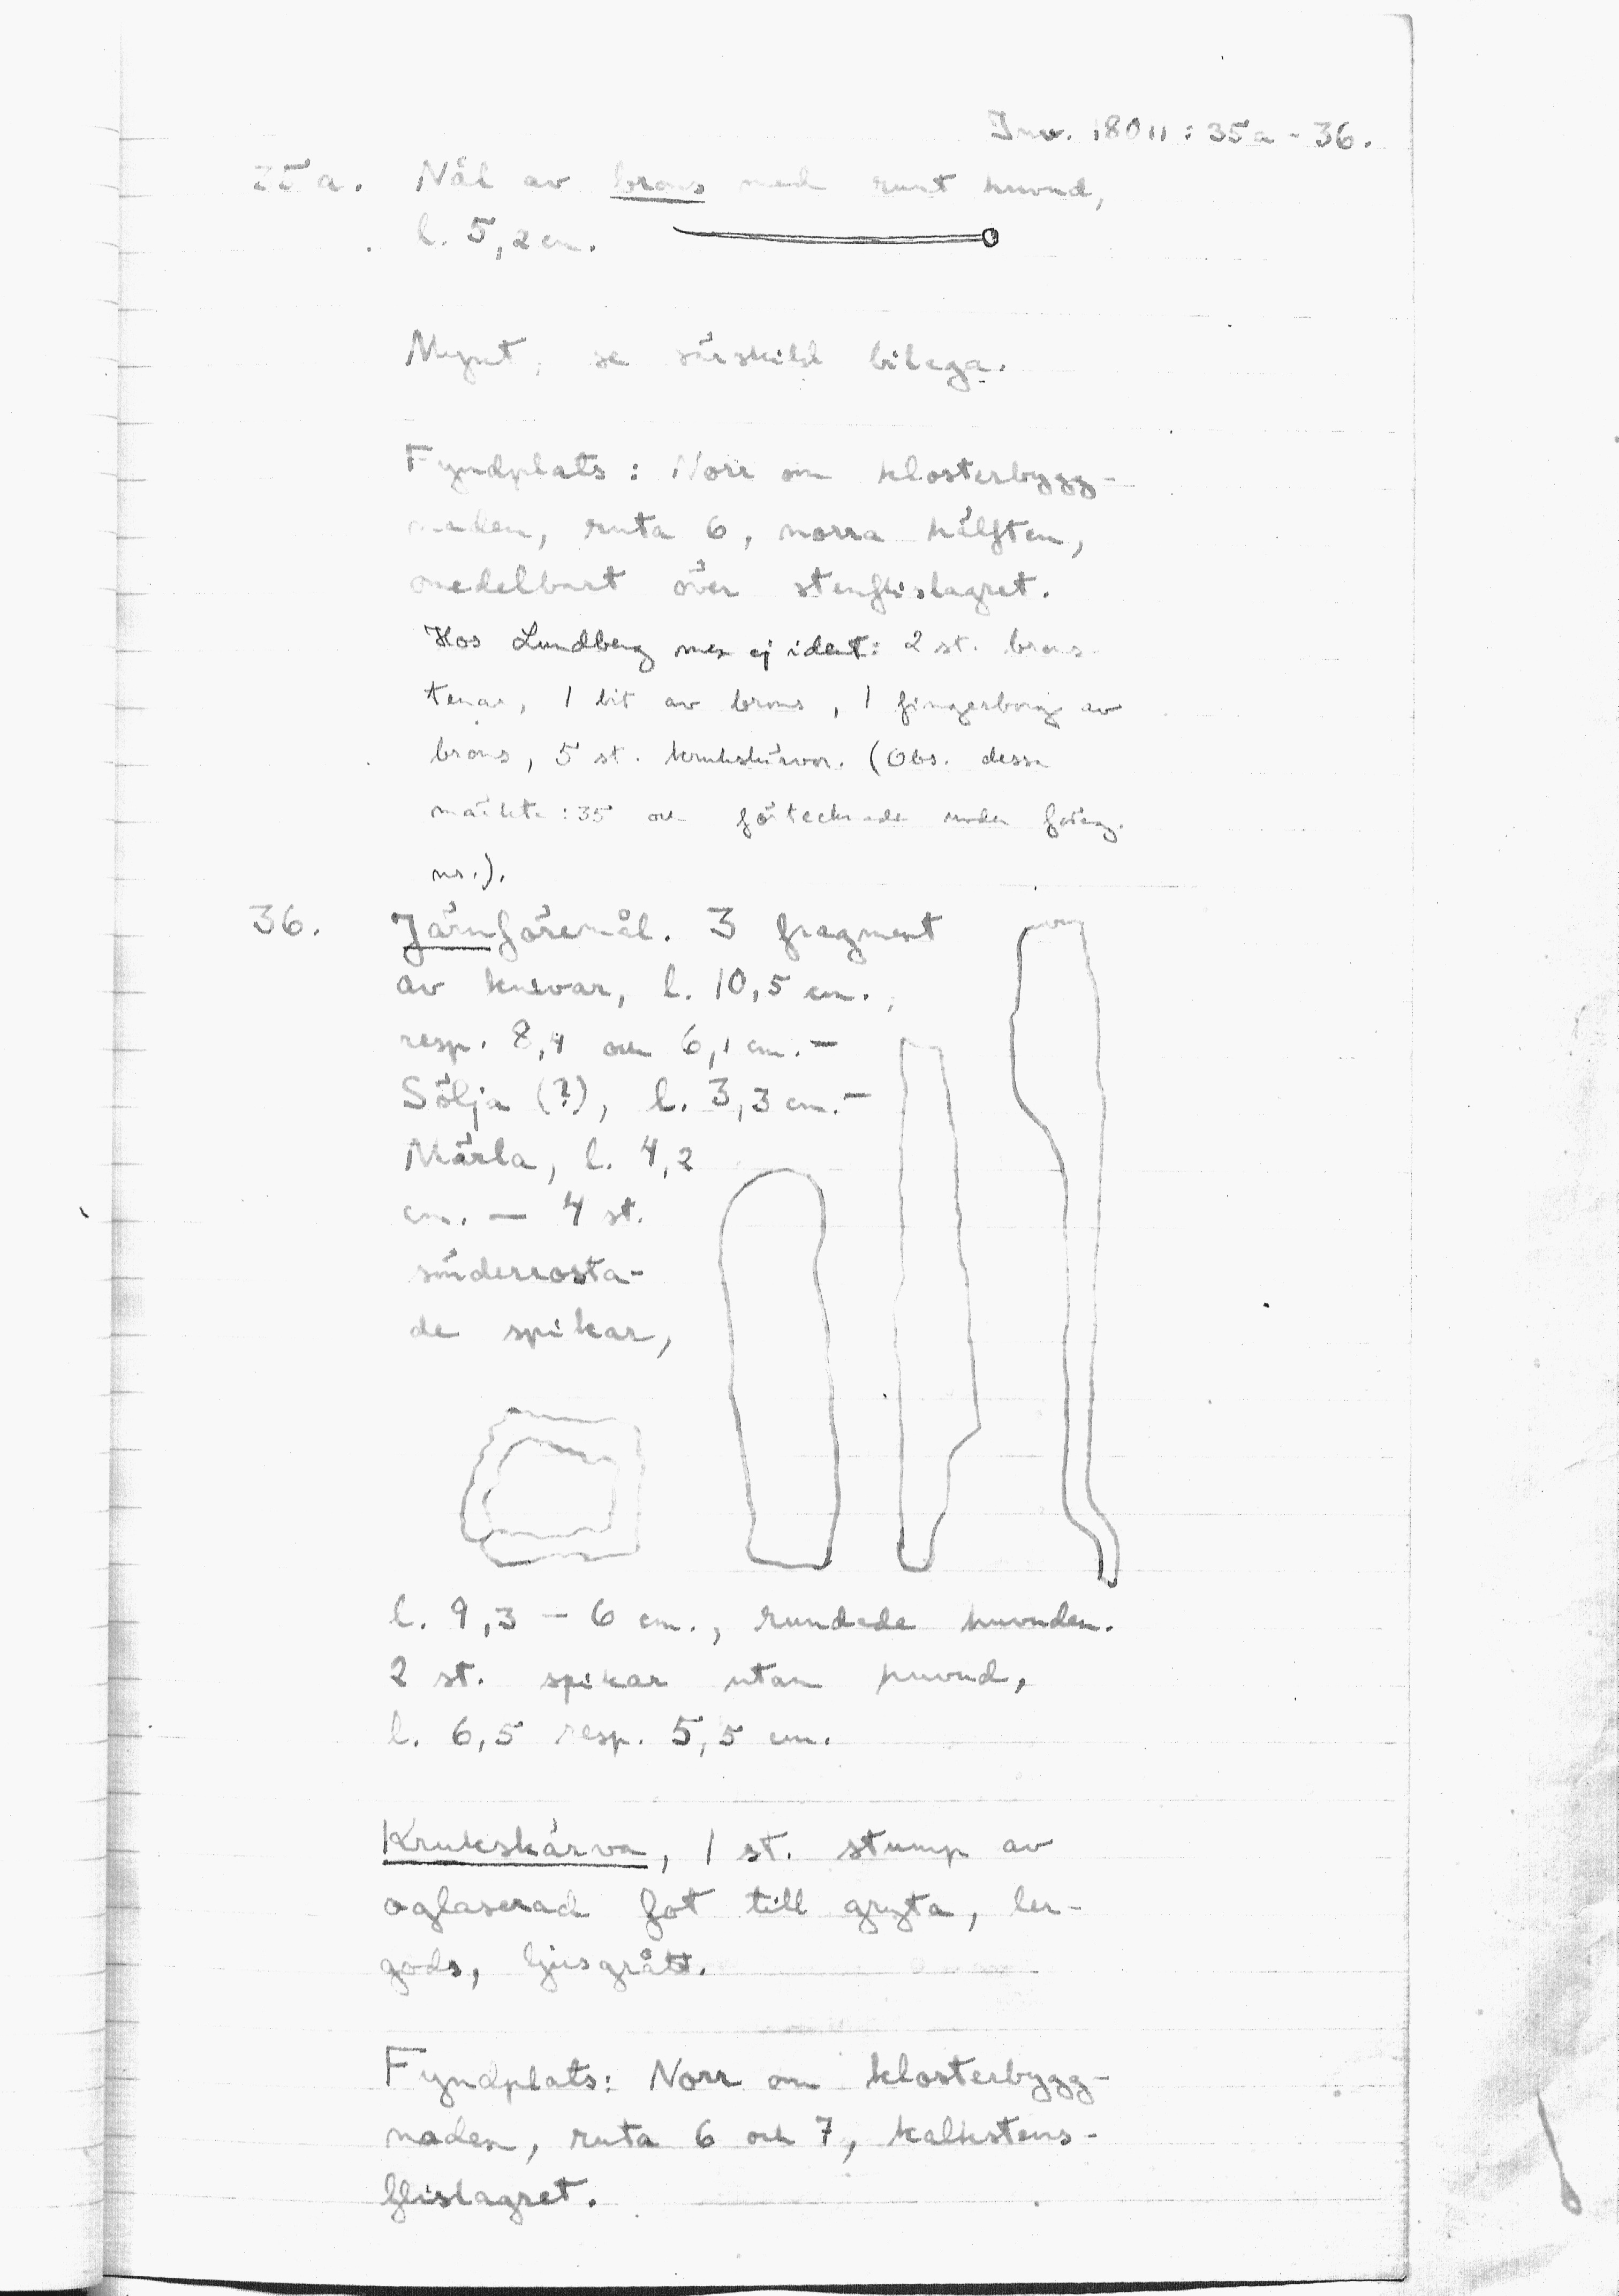 Inv. 18011 : 35a - 36.
35a. Nål av brons med runt huvud,
l. 5,2 cm.
Mynt, se särskild bilaga.
Fyndplats : Norr om klosterbygg-
naden, ruta 6, norra hälften,
omedelbart över stenflislagret.
Hos Lundberg men ej ident: 2 st. brons-
tenar, 1 bit av brons, 1 fingerborg av
brons, 5 st. krukskärvor. (Obs. dessa
märkta :35 och förtecknade under föreg.
nr.).
36. Järnföremål. 3 fragment
av knivar, l. 10,5 cm.,
resp. 8,4 och 6,1 cm. -
Sölja (?), l. 3,3 cm. -
Märla, l. 4,2
cm. - 4 st.
sönderrosta-
de spikar,
l. 9,3 - 6 cm., rundade huvuden.
2 st. spikar utan huvud,
l. 6,5 resp. 5,5 cm.
Krukskärva, 1 st. stump av
oglaserad fot till gryta, ler-
gods, ljusgrått.
Fyndplats: Norr om klosterbygg-
naden, ruta 6 och 7, kalkstens-
flislagret.